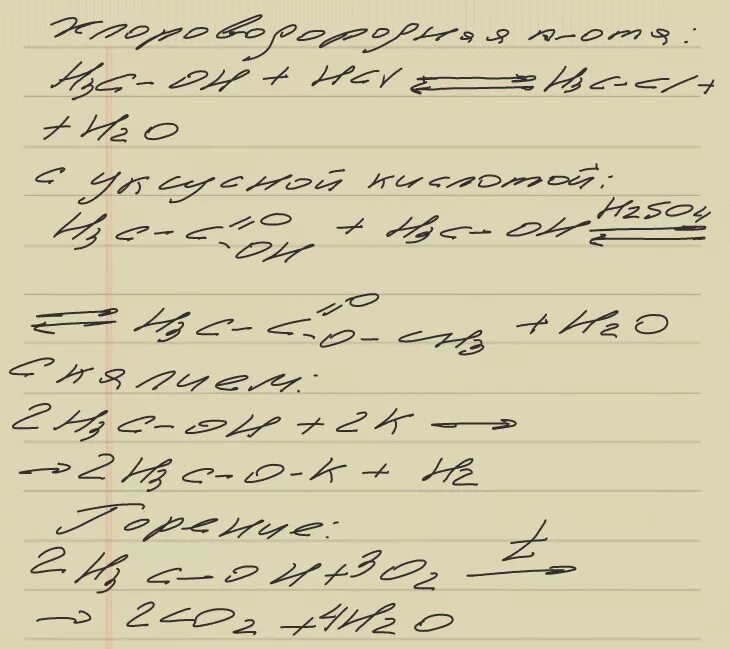 Хлороводородная к-ота:
H3C-OH + HCl ⇄ H3C-Cl +
+ H2O
С уксусной кислотой:
H3C-C(=O)-OH + H3C-OH ⇄ H2SO4
⇄ H3C-C(=O)-O-CH3 + H2O
С калием:
2H3C-OH + 2K →
→ 2H3C-O-K + H2
Горение:
2H3C-OH + 3O2 → t
→ 2CO2 + 4H2O